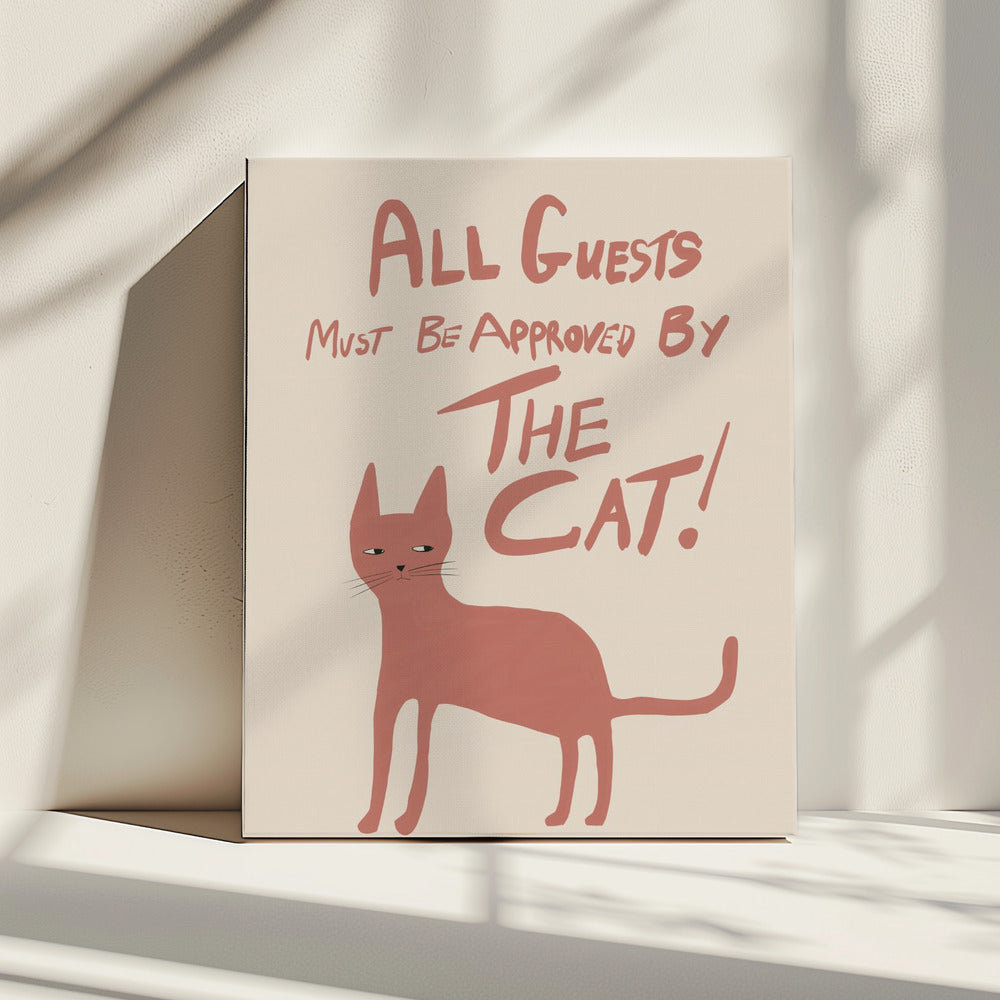 All Guests
Must Be Approved By
The
Cat!